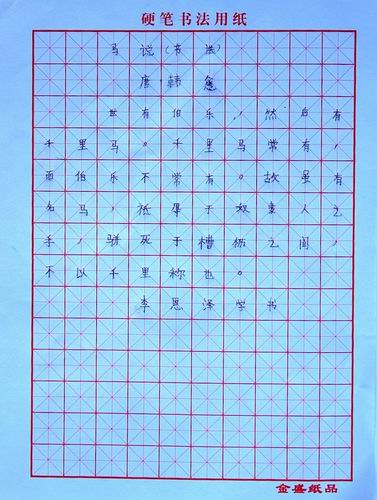 硬笔书法用纸
马说（节选）
唐·韩愈
世有伯乐，然后有
千里马。千里马常有，
而伯乐不常有。故虽有
名马，祗辱于奴隶人之
手，骈死于槽枥之间，
不以千里称也。
李思泽学书
金盛纸品